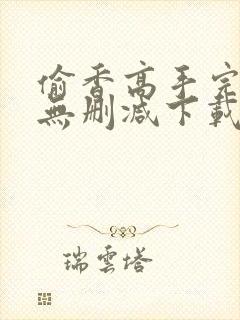 偷香高手完
無刪减下載
瑞雲塔